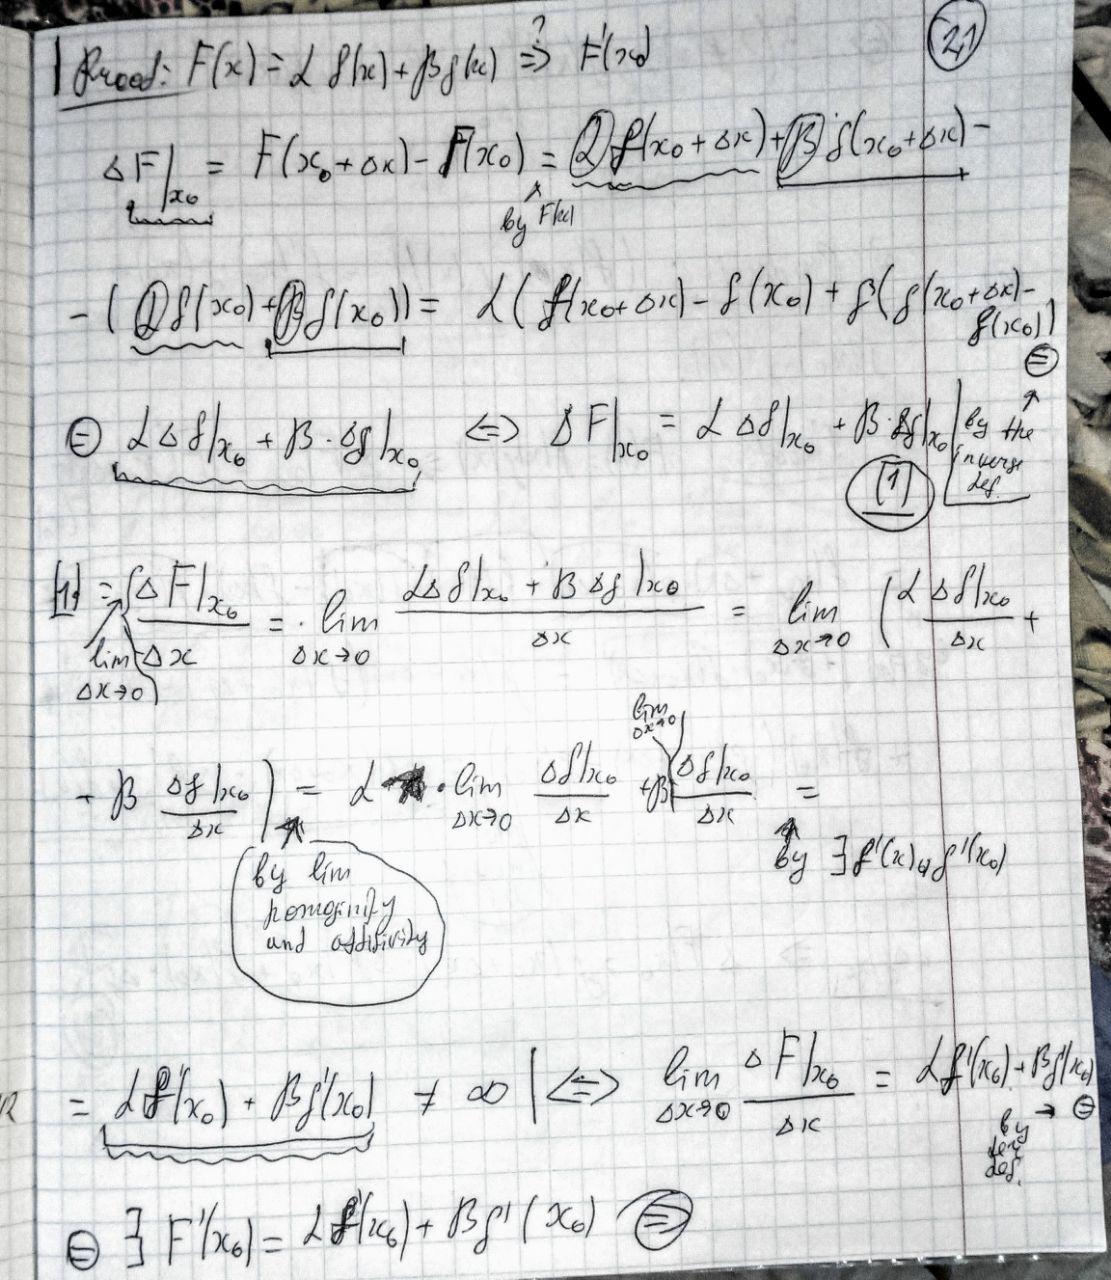 21
Proof: F(x) = α f(x) + β g(x) ?⇒ F'(x₀)
ΔF|x₀ = F(x₀ + Δx) - F(x₀) = α f(x₀ + Δx) + β g(x₀ + Δx) -
by F(x)
- (α f(x₀) + β g(x₀)) = α ( f(x₀ + Δx) - f(x₀) + β ( g(x₀ + Δx) -
g(x₀))
⊜
⊜ α Δf|x₀ + β · Δg|x₀ ⇔ ΔF|x₀ = α Δf|x₀ + β · Δg|x₀
by the
inverse
def.
(1)
(1) = ΔF|x₀ / Δx = lim Δx→0 (αΔf|x₀ + β Δg|x₀) / Δx = lim Δx→0 ( α Δf|x₀ / Δx +
lim Δx→0
lim Δx→0
+ β Δg|x₀ / Δx ) = α · lim Δx→0 Δf|x₀ / Δx + β Δg|x₀ / Δx =
by ∃ f'(x), g'(x₀)
by lim
homoginity
and additivity
= α f'(x₀) + β g'(x₀) ≠ ∞ | ⇔ lim Δx→0 ΔF|x₀ / Δx = α f'(x₀) + β g'(x₀)
by → ⊜
def.
⊜ ∃ F'(x₀) = α f'(x₀) + β g'(x₀) ⊜